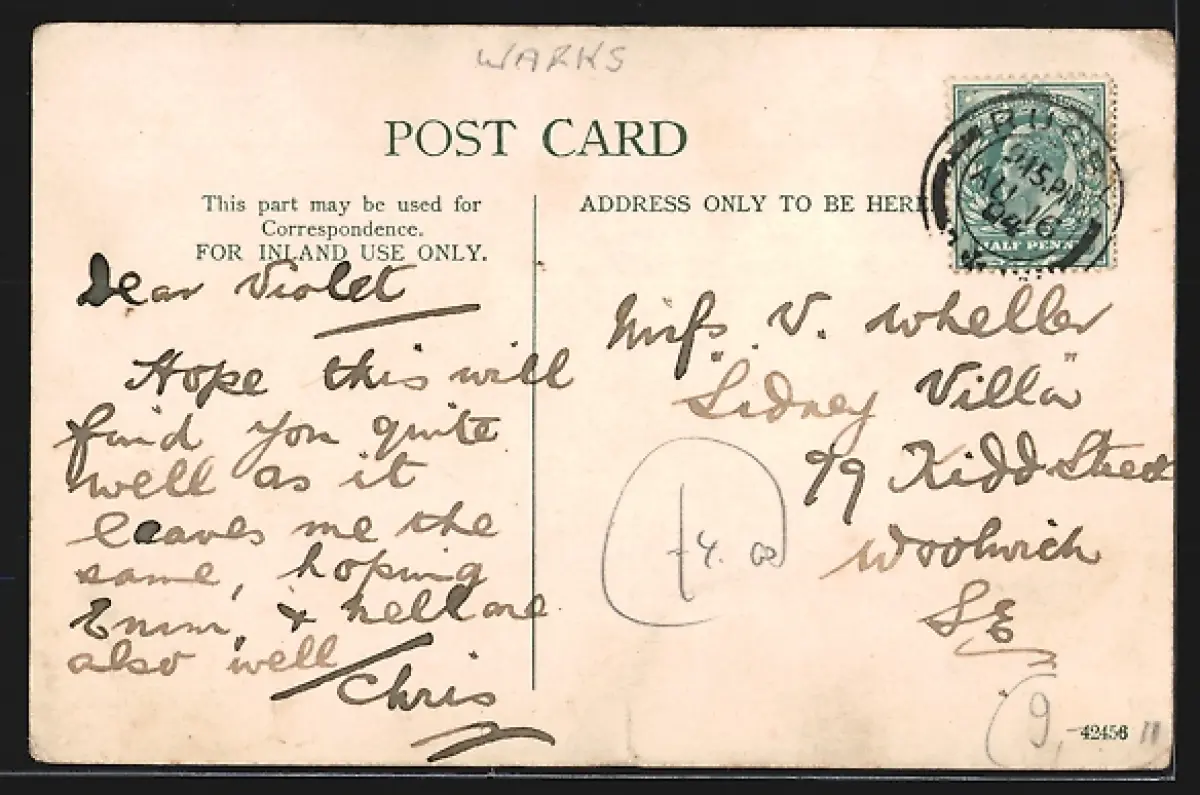 WARKS
POST CARD
This part may be used for
Correspondence.
FOR INLAND USE ONLY.
Dear Violet
Hope this will
find you quite
well as it
leaves me the
same, hoping
Emm, & Nell are
also well
Chris
ADDRESS ONLY TO BE HERE
RUGBY
9 15 PM
AU 16
04
HALF PENNY
Miss V. Wheller
"Sidney Villa"
99 Kidd Street
Woolwich
SE
4.00
9
42456 11